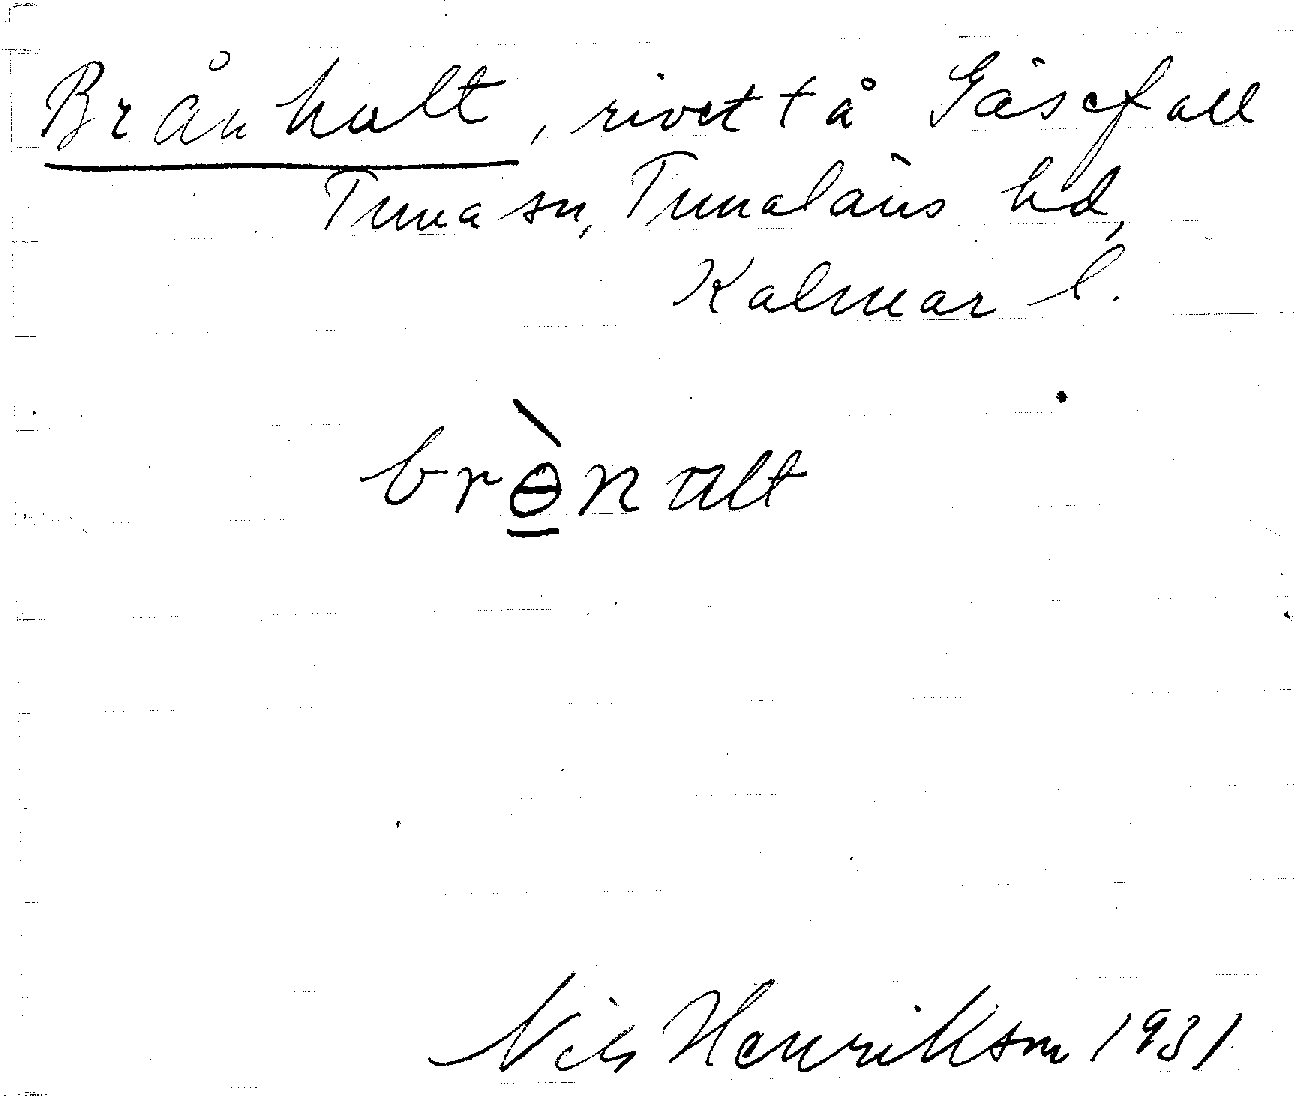 Brånhult, rivet t å Gåsefall
Tuna sn, Tunaläns hd,
Kalmar l.
brөnalt
Nils Henrikson 1931